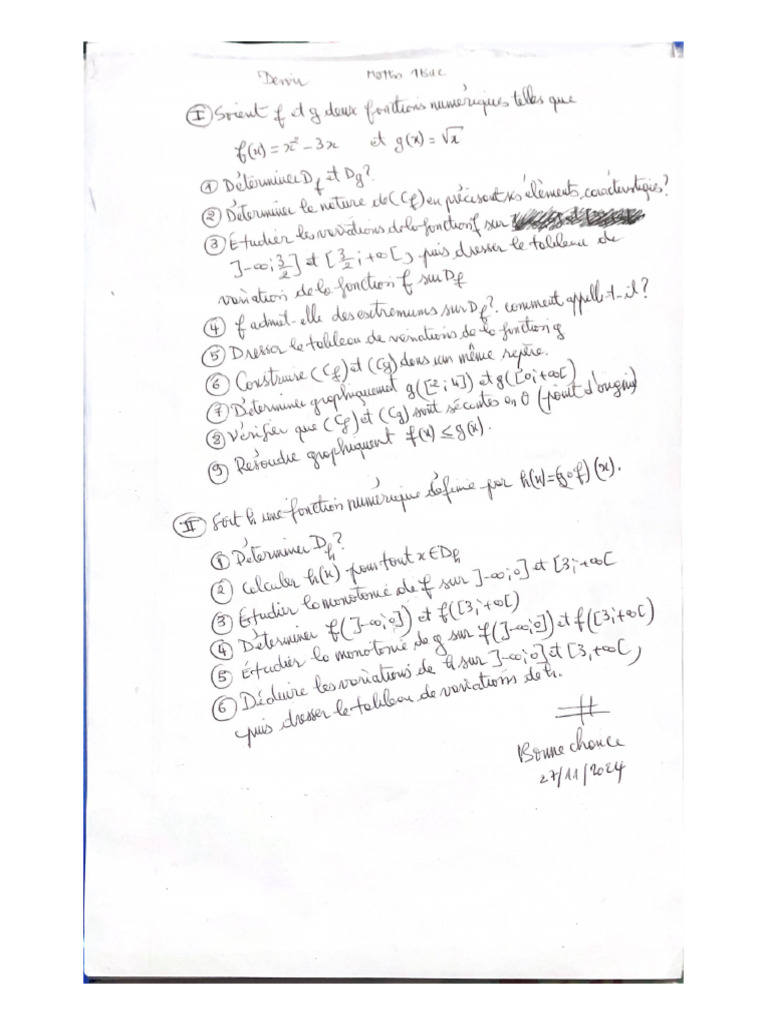 Devoir Maths 1Bac
I Soient f et g deux fonctions numériques telles que
f(x) = x² - 3x et g(x) = √x
① Déterminer Df et Dg?
② Déterminer la nature de (Cf) en précisant ses éléments caractéristiques?
③ Étudier les variations de la fonction f sur
]-∞; 3/2] et [3/2; +∞[, puis dresser le tableau de
variation de la fonction f sur Df
④ f admet-elle des extremums sur Df? comment appelle-t-il?
⑤ Dresser le tableau de variations de la fonction g
⑥ Construire (Cf) et (Cg) dans un même repère.
⑦ Déterminer graphiquement g([2; 4]) et g([0; +∞[)
⑧ Vérifier que (Cf) et (Cg) sont sécantes en O (point d'origine)
⑨ Résoudre graphiquent f(x) ≤ g(x).
II Soit h une fonction numérique définie par h(x) = (g∘f)(x).
① Déterminer Dh?
② Calculer h(x) pour tout x ∈ Dh
③ Étudier la monotonie de f sur ]-∞; 0] et [3; +∞[
④ Déterminer f(]-∞; 0]) et f([3; +∞[)
⑤ Étudier la monotonie de g sur f(]-∞; 0]) et f([3; +∞[)
⑥ Déduire les variations de h sur ]-∞; 0] et [3, +∞[,
puis dresser le tableau de variations de h.
Bonne chance
27/11/2024